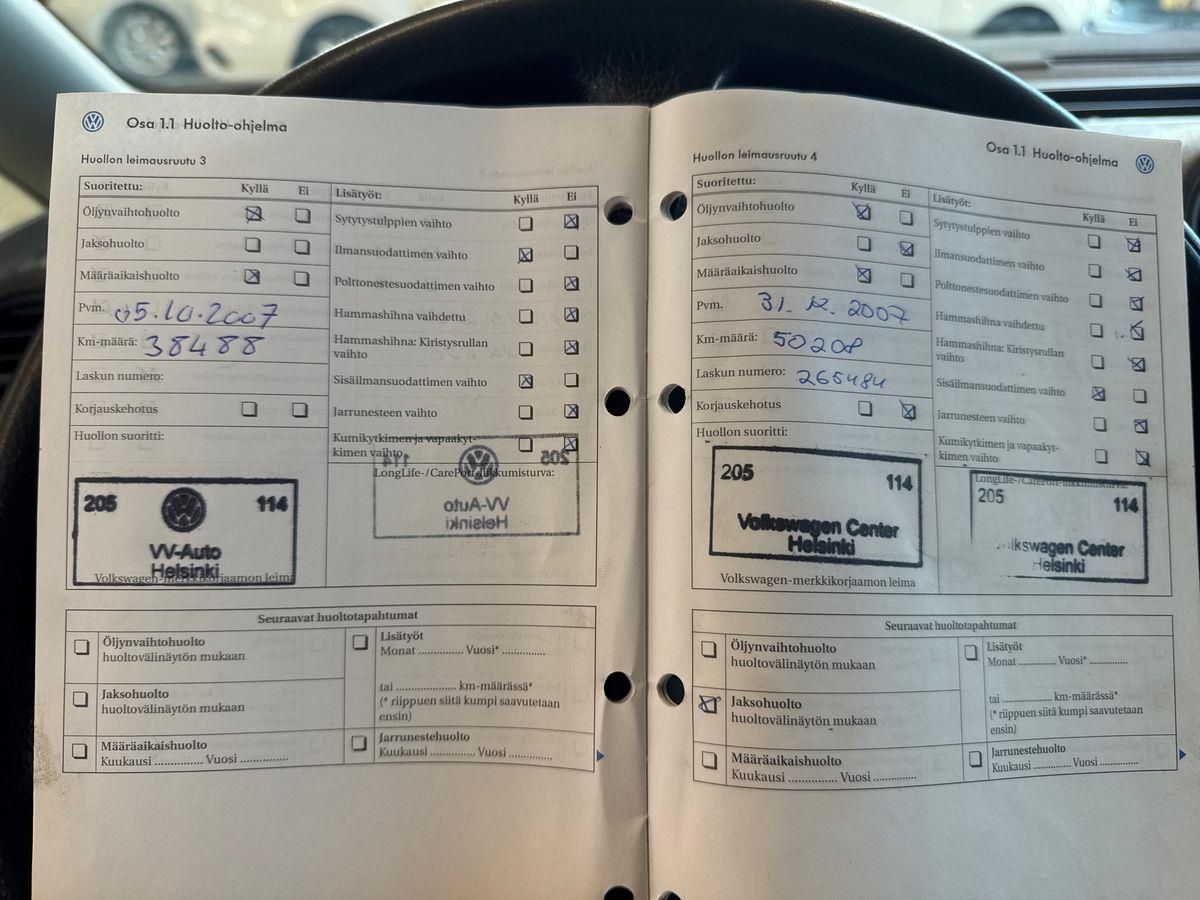 Osa 1.1 Huolto-ohjelma
Huollon leimausruutu 3
Suoritettu: Kyllä Ei
Öljynvaihtohuolto
Jaksohuolto
Määräaikaishuolto
Pvm. 05.10.2007
Km-määrä: 38488
Laskun numero:
Korjauskehotus
Huollon suoritti:
205 114
VV-Auto
Helsinki
Volkswagen-merkkikorjaamon leima
Lisätyöt: Kyllä Ei
Sytytystulppien vaihto
Ilmansuodattimen vaihto
Polttonestesuodattimen vaihto
Hammashihna vaihdettu
Hammashihna: Kiristysrullan
vaihto
Sisäilmansuodattimen vaihto
Jarrunesteen vaihto
Kumikytkimen ja vapaakyt-
kimen vaihto
LongLife-/CarePort-liikkumisturva:
205 114
VV-Auto
Helsinki
Seuraavat huoltotapahtumat
Öljynvaihtohuolto
huoltovälinäytön mukaan
Jaksohuolto
huoltovälinäytön mukaan
Määräaikaishuolto
Kuukausi ............... Vuosi ...............
Lisätyöt
Monat .............. Vuosi* ..............
tai .................... km-määrässä*
(* riippuen siitä kumpi saavutetaan
ensin)
Jarrunestehuolto
Kuukausi .............. Vuosi ..............
Osa 1.1 Huolto-ohjelma
Huollon leimausruutu 4
Suoritettu: Kyllä Ei
Öljynvaihtohuolto
Jaksohuolto
Määräaikaishuolto
Pvm. 31. 12. 2007
Km-määrä: 50208
Laskun numero: 265484
Korjauskehotus
Huollon suoritti:
205 114
Volkswagen Center
Helsinki
Volkswagen-merkkikorjaamon leima
Lisätyöt: Kyllä Ei
Sytytystulppien vaihto
Ilmansuodattimen vaihto
Polttonestesuodattimen vaihto
Hammashihna vaihdettu
Hammashihna: Kiristysrullan
vaihto
Sisäilmansuodattimen vaihto
Jarrunesteen vaihto
Kumikytkimen ja vapaakyt-
kimen vaihto
LongLife-/CarePort-liikkumisturva:
205 114
lkswagen Center
Helsinki
Seuraavat huoltotapahtumat
Öljynvaihtohuolto
huoltovälinäytön mukaan
Jaksohuolto
huoltovälinäytön mukaan
Määräaikaishuolto
Kuukausi ............... Vuosi ...............
Lisätyöt
Monat .............. Vuosi* ..............
tai .................... km-määrässä*
(* riippuen siitä kumpi saavutetaan
ensin)
Jarrunestehuolto
Kuukausi .............. Vuosi ..............